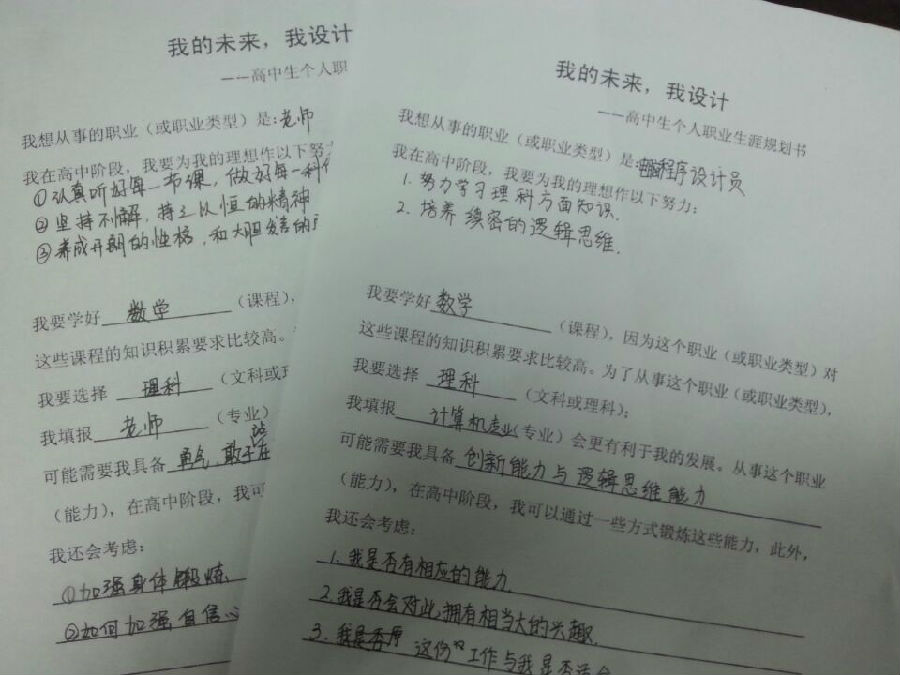 我的未来，我设计
——高中生个人职
我想从事的职业（或职业类型）是:老师
我在高中阶段，我要为我的理想作以下努
①认真听好每一节课，做好每一科
②坚持不懈，持之以恒的精神
③养成开朗的性格，和大胆发言的
我要学好 数学 （课程），
这些课程的知识积累要求比较高。
我要选择 理科 （文科或理
我填报 老师 （专业）
可能需要我具备 勇气，敢于在
（能力），在高中阶段，我可
我还会考虑：
①加强身体锻炼、
②如何加强自信心
我的未来，我设计
——高中生个人职业生涯规划书
我想从事的职业（或职业类型）是:电脑程序设计员
我在高中阶段，我要为我的理想作以下努力：
1. 努力学习理科方面知识.
2. 培养缜密的逻辑思维.
我要学好 数学 （课程），因为这个职业（或职业类型）对
这些课程的知识积累要求比较高。为了从事这个职业（或职业类型），
我要选择 理科 （文科或理科）；
我填报 计算机专业（专业）会更有利于我的发展。从事这个职业
可能需要我具备 创新能力与逻辑思维能力
（能力），在高中阶段，我可以通过一些方式锻炼这些能力，此外，
我还会考虑：
1. 我是否有相应的能力.
2. 我是否会对此拥有相当大的兴趣.
3. 这份工作与我是否适合